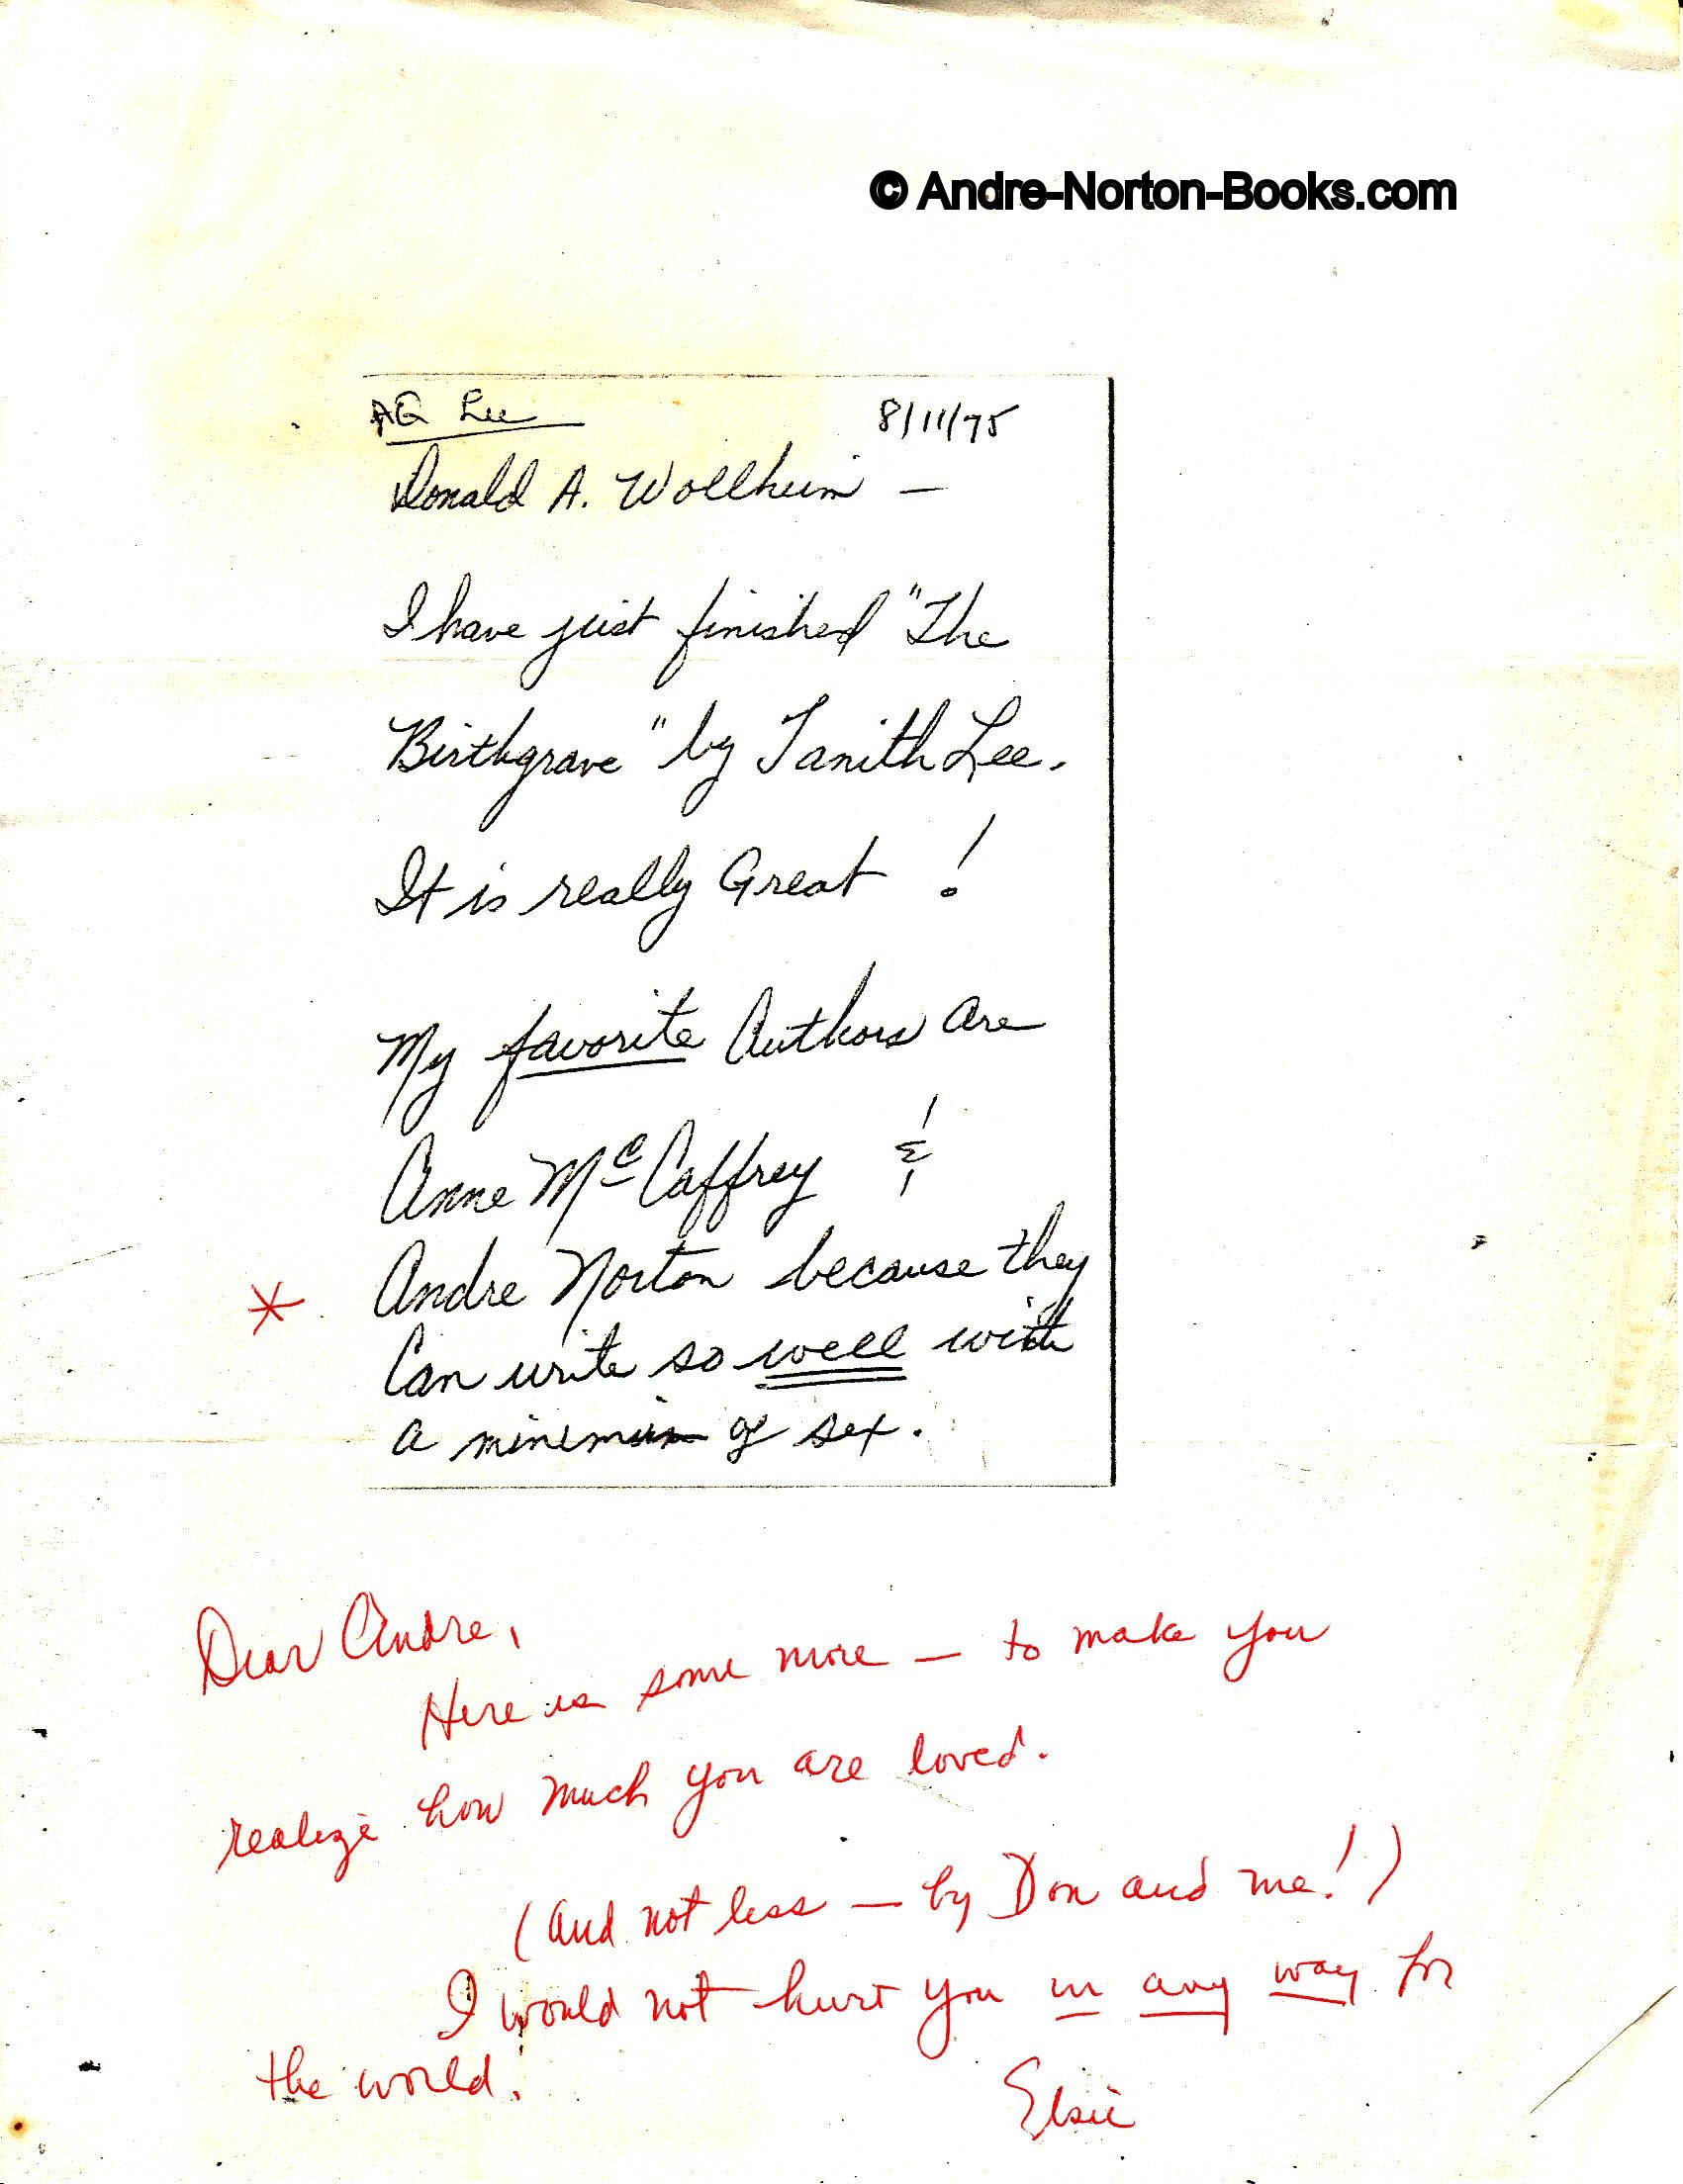 © Andre-Norton-Books.com
AQ Lee 8/11/75
Donald A. Wollheim —
I have just finished "The
Birthgrave" by Tanith Lee.
It is really Great !
My favorite Authors are
Anne McCaffrey &
* Andre Norton because they
Can write so well with
a minimum of sex.
Dear Andre,
Here is some more — to make you
realize how much you are loved.
(And not less — by Don and me!)
I would not hurt you in any way for
the world!
Elsie